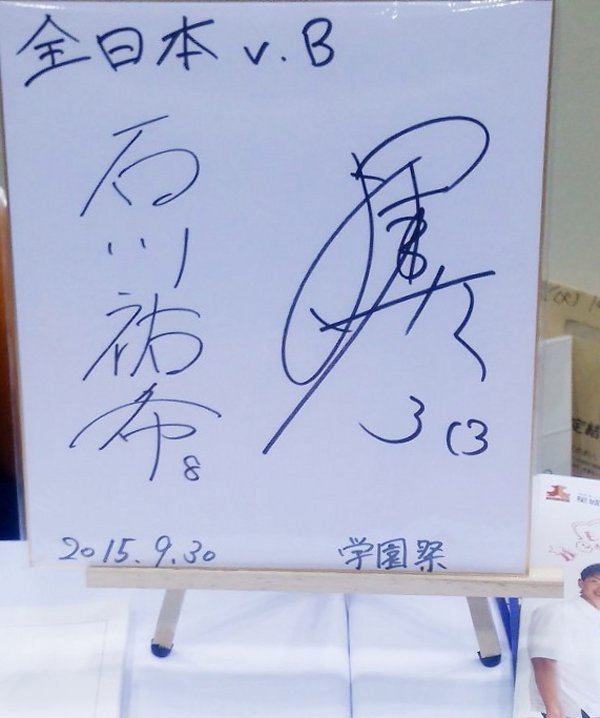 全日本 v.B
石川祐希
8
3 13
2015.9.30 学園祭